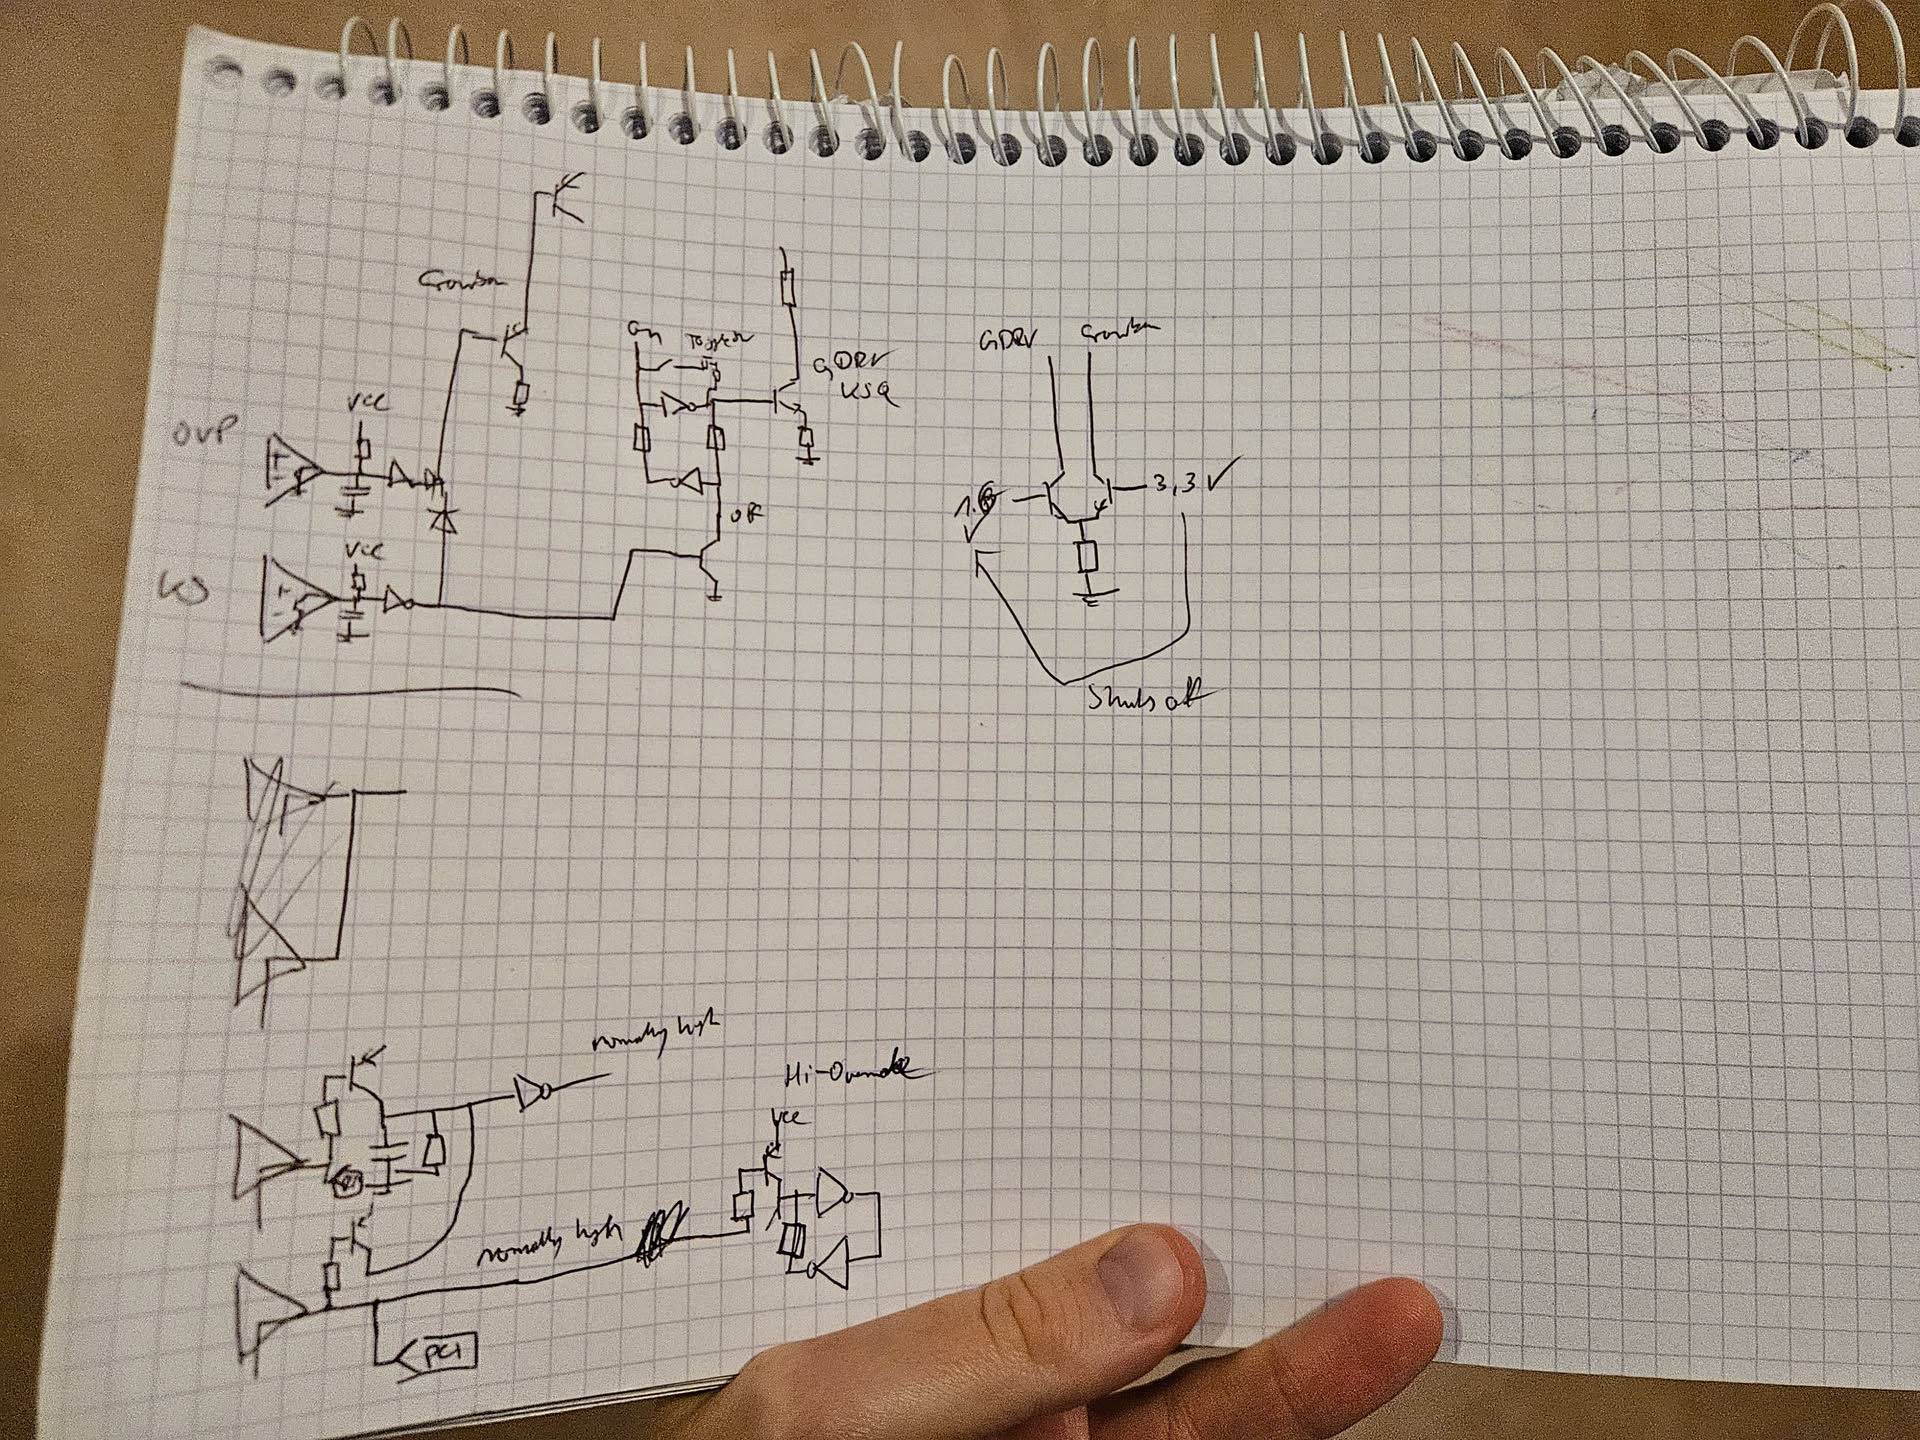 Crowbar
On
Toggle
GDRV
KSQ
VCC
OVP
VCC
OR
GDRV Crowbar
3,3V
Shuts off
normally high
Hi-Override
VCC
normally high